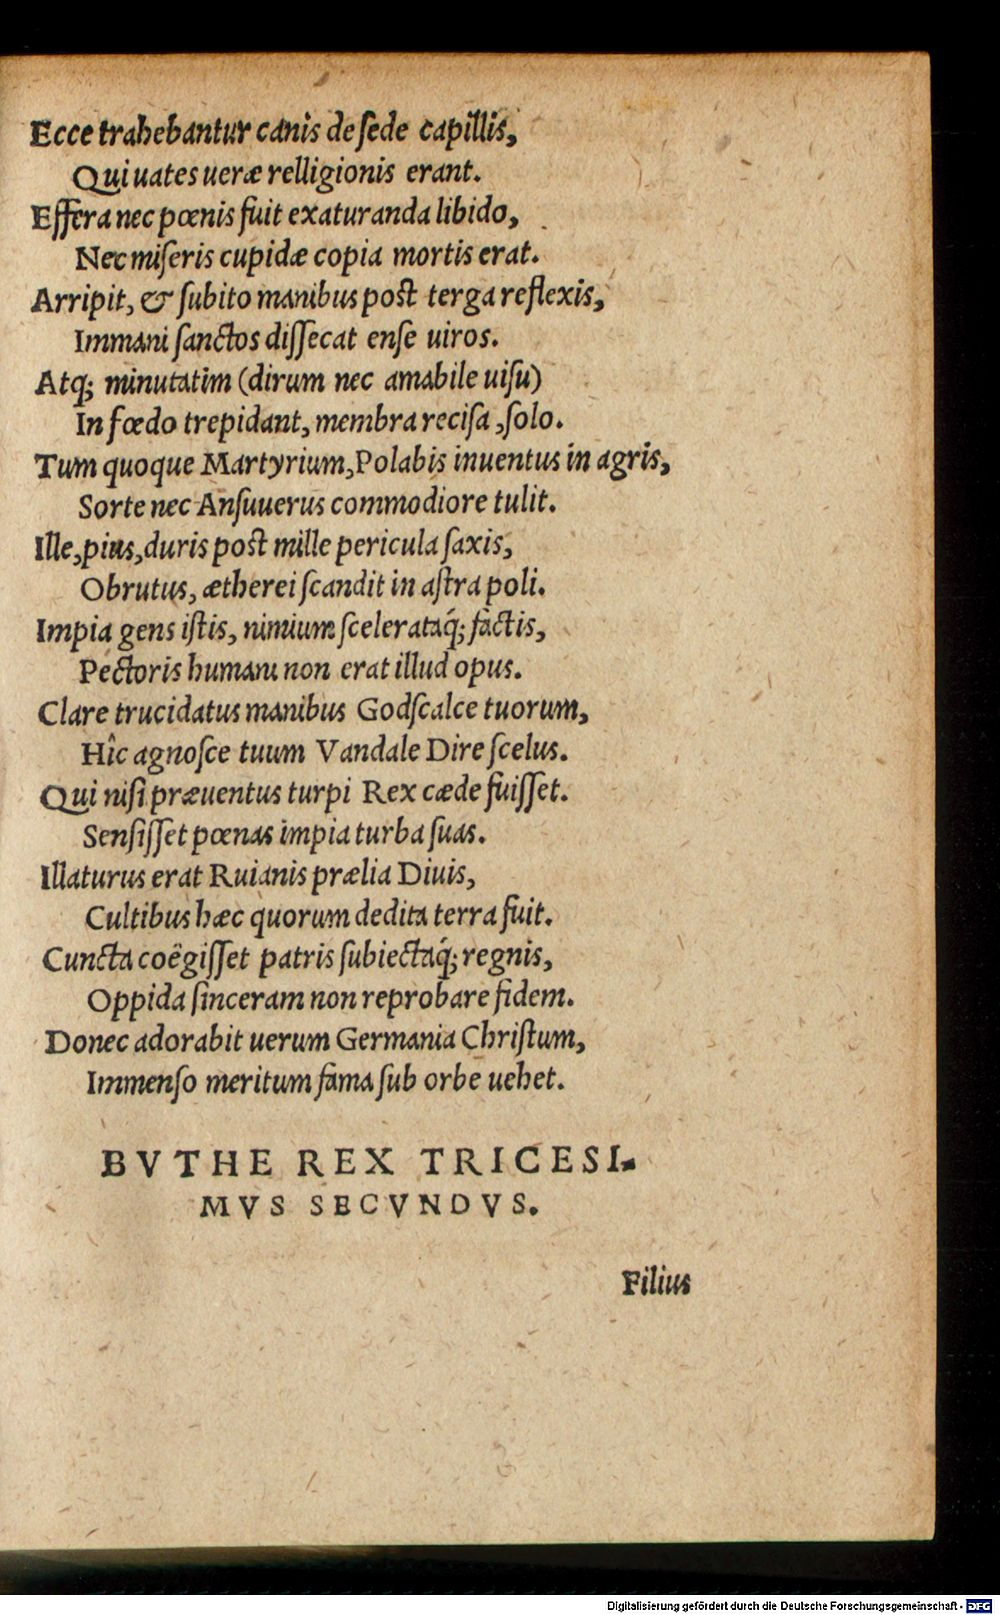 Ecce trahebantur canis de ſede capillis,
Qui uates ueræ relligionis erant.
Effera nec pœnis fuit exaturanda libido,
Nec miſeris cupidæ copia mortis erat.
Arripit, & ſubito manibus post terga reflexis,
Immani ſanctos diſſecat enſe uiros.
Atq; minutatim (dirum nec amabile uiſu)
In fœdo trepidant, membra reciſa, ſolo.
Tum quoque Martyrium, Polabis inuentus in agris,
Sorte nec Anſuuerus commodiore tulit.
Ille, pius, duris post mille pericula ſaxis,
Obrutus, ætherei ſcandit in aſtra poli.
Impia gens iſtis, nimium ſcelerataq́; factis,
Pectoris humani non erat illud opus.
Clare trucidatus manibus Godſcalce tuorum,
Hîc agnoſce tuum Vandale Dire ſcelus.
Qui niſi præuentus turpi Rex cæde fuiſſet.
Senſiſſet pœnas impia turba ſuas.
Illaturus erat Ruianis prælia Diuis,
Cultibus hæc quorum dedita terra fuit.
Cuncta coëgiſſet patris ſubiectaq́; regnis,
Oppida ſinceram non reprobare fidem.
Donec adorabit uerum Germania Chriſtum,
Immenſo meritum fama ſub orbe uehet.
BVTHE REX TRICESI-
MVS SECVNDVS.
Filius
Digitalisierung gefördert durch die Deutsche Forschungsgemeinschaft - DFG